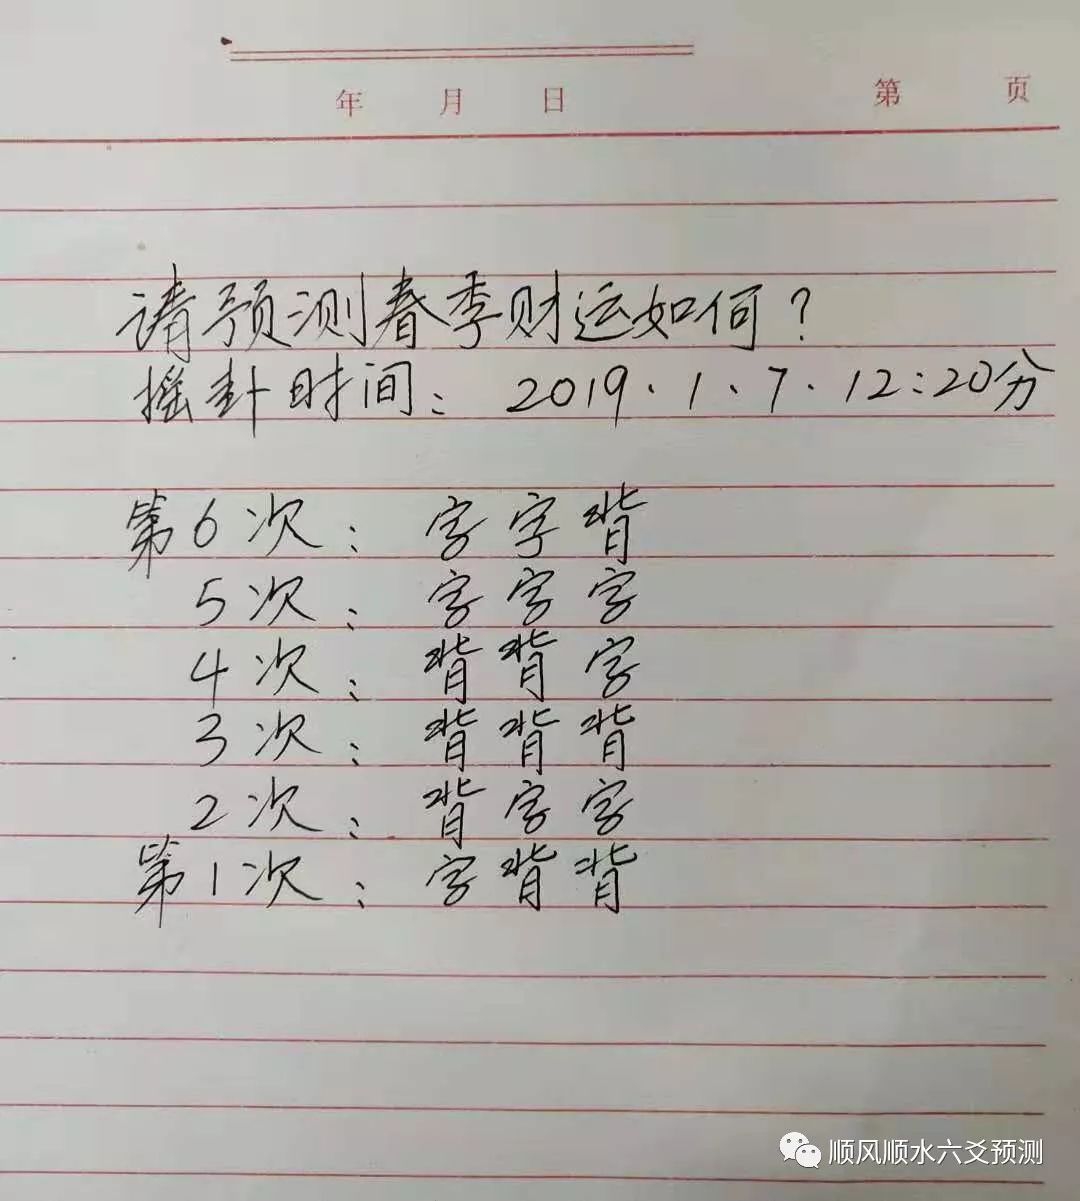 年 月 日 第 页
请预测春季财运如何?
摇卦时间: 2019.1.7.12:20分
第6次: 字字背
5次: 字字字
4次: 背背字
3次: 背背背
2次: 背字字
第1次: 字背背
顺风顺水六爻预测